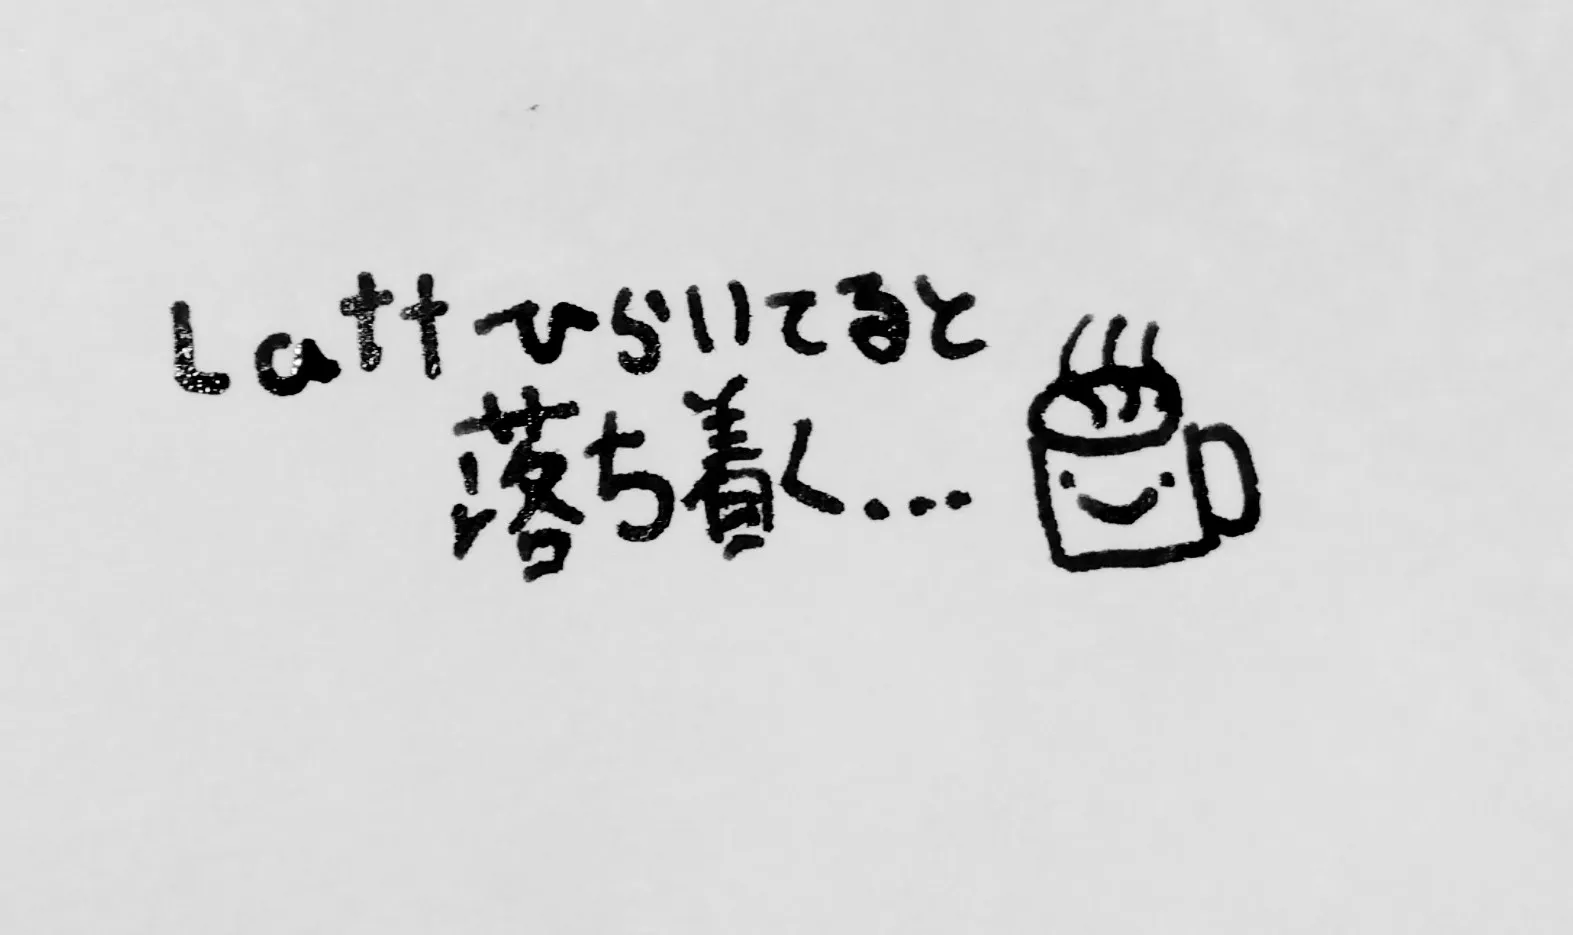 Latt ひらいてると
落ち着く...